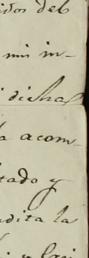 idos del
mi in-
dichas
a acom-
tado y
dita la